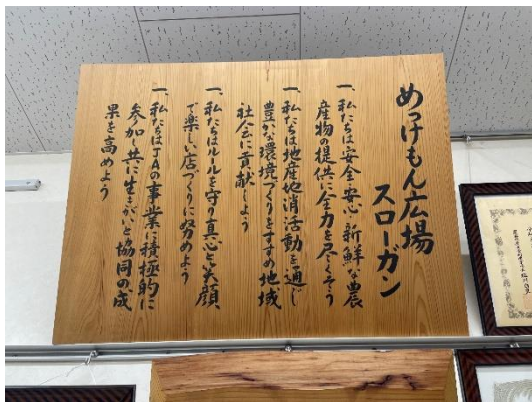 めっけもん広場
スローガン
一、私たちは安全・安心・新鮮な農
産物の提供に全力を尽くそう
一、私たちは地産地消活動を通じ
豊かな環境づくりをすすめ地域
社会に貢献しよう
一、私たちはルールを守り真心と笑顔
で楽しい店づくりに努めよう
一、私たちはJAの事業に積極的に
参加し共に生きがいと協同の成
果を高めよう